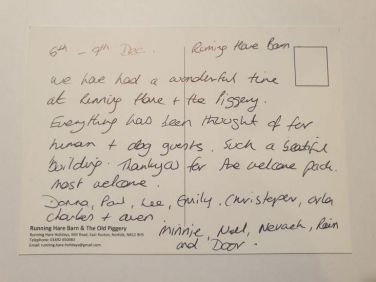 6th - 9th Dec. Running Hare Barn
We have had a wonderful time
at Running Hare + the Piggery.
Everything has been thought of for
human + dog guests. Such a beautiful
building. Thankyou for the welcome pack.
most welcome.
Donna, Paul, Lee, Emily, Christopher,
Charles +
Minnie, Noel, Nevaeh, Rain
and Door.
Running Hare Barn & The Old Piggery
Running Hare Holidays, Mill Road, East Ruston, Norfolk, NR12 9HS
Telephone: 01692 650083
Email: running.hare.holidays@gmail.com